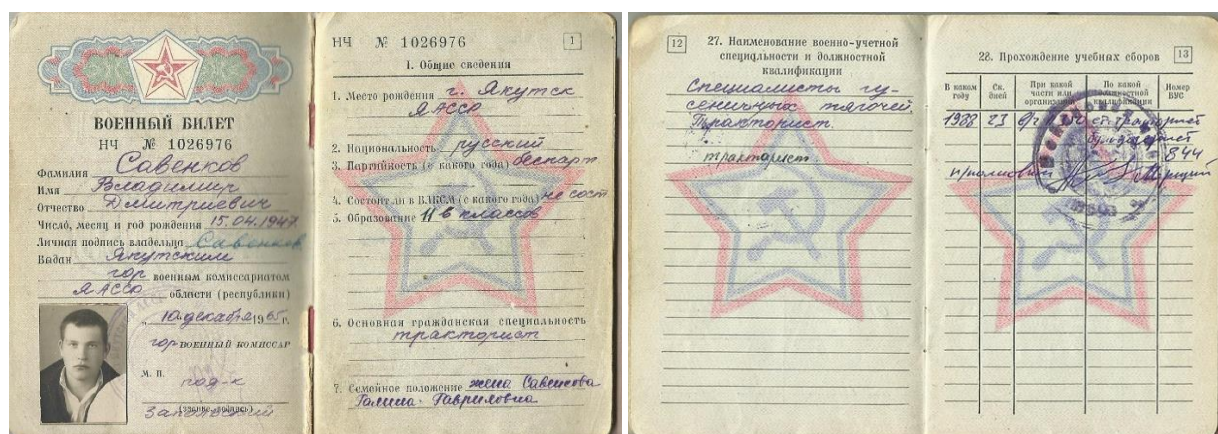 ВОЕННЫЙ БИЛЕТ
НЧ № 1026976
Фамилия Савенков
Имя Владимир
Отчество Дмитриевич
Число, месяц и год рождения 15.04.1947
Личная подпись владельца Савенков
Выдан Якутским
гор военным комиссариатом
ЯАССР области (республики)
„10" декабря 1965 г.
гор ВОЕННЫЙ КОМИССАР
М. П. под-к
(звание, подпись)
НЧ № 1026976
1
I. Общие сведения
1. Место рождения г. Якутск
ЯАССР
2. Национальность русский
3. Партийность (с какого года) беспарт
4. Состоит ли в ВЛКСМ (с какого года) не сост
5. Образование 11 классов
6. Основная гражданская специальность
тракторист
7. Семейное положение жена Савенкова
Галина Гавриловна
12
27. Наименование военно-учетной
специальности и должностной
квалификации
Специалисты гу-
сеничных тягачей.
Тракторист.
тракторист
28. Прохождение учебных сборов
13
В каком году
Ск. дней
При какой части или организации
По какой должностной квалификации
Номер ВУС
1988 23 в/ч ст. тракторист
бульдозерист
844